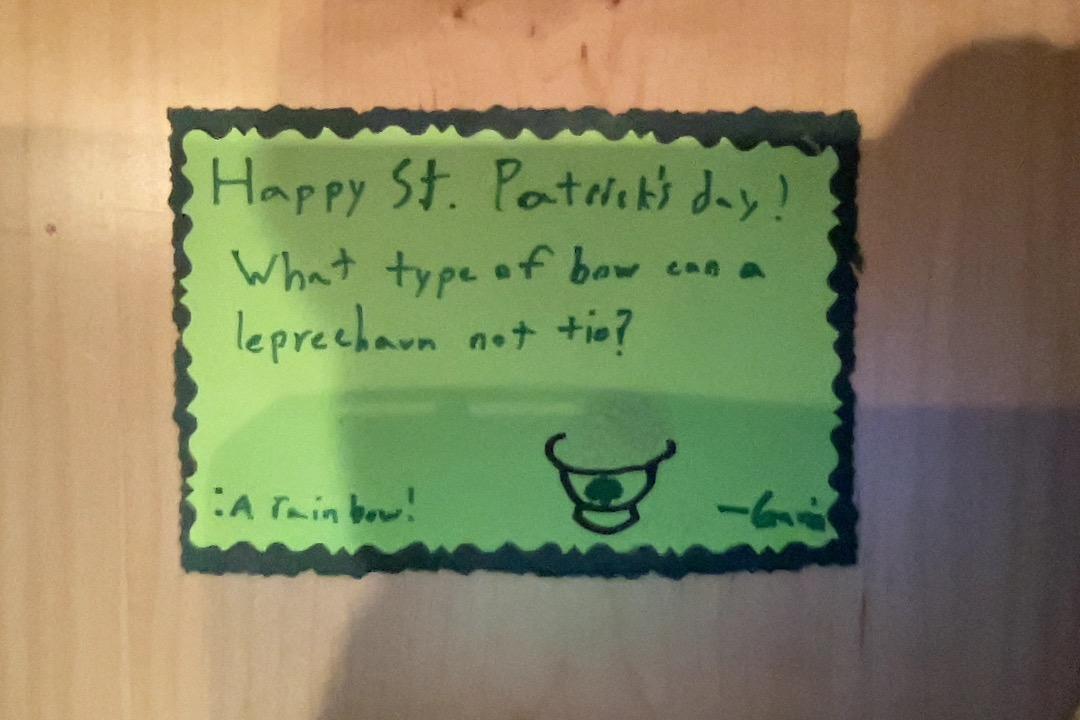 Happy St. Patrick's day!
What type of bow can a
leprechaun not tie?
:A rain bow!